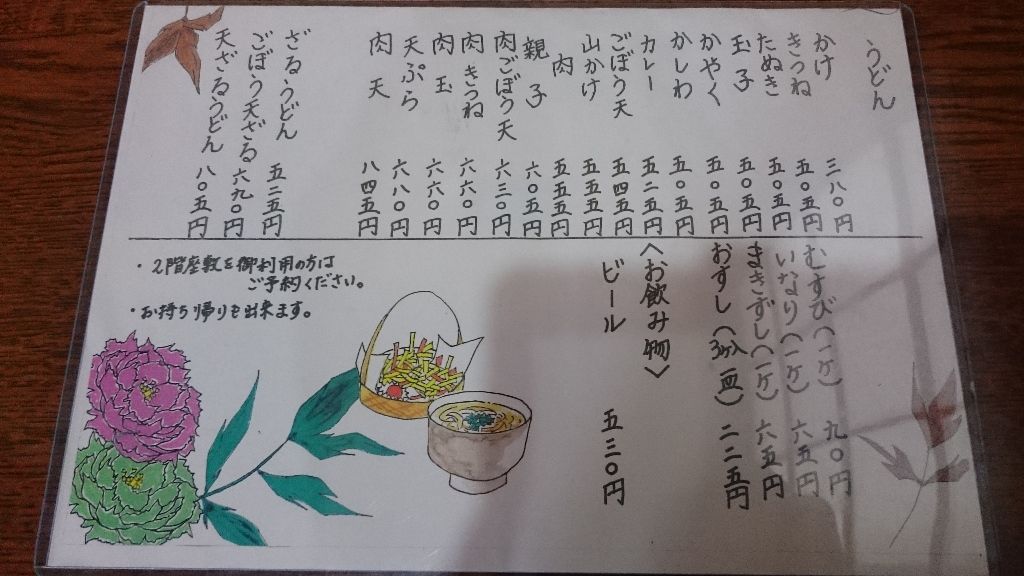 うどん
かけ 三八〇円
きつね 五〇五円
たぬき 五〇五円
玉子 五〇五円
かやく 五〇五円
かしわ 五〇五円
カレー 五二五円
ごぼう天 五四五円
山かけ 五五五円
肉 五五五円
親子 六〇五円
肉ごぼう天 六三〇円
肉きつね 六六〇円
肉玉 六六〇円
天ぷら 六八〇円
肉天 八四五円
ざるうどん 五二五円
ごぼう天ざる 六九〇円
天ざるうどん 八〇五円
むすび(一ケ) 九〇円
いなり(一ケ) 六五円
まきずし(一ケ) 六五円
おすし(3ケ入一皿) 二二五円
〈お飲み物〉
ビール 五三〇円
・2階座敷を御利用の方は
ご予約ください。
・お持ち帰りも出来ます。